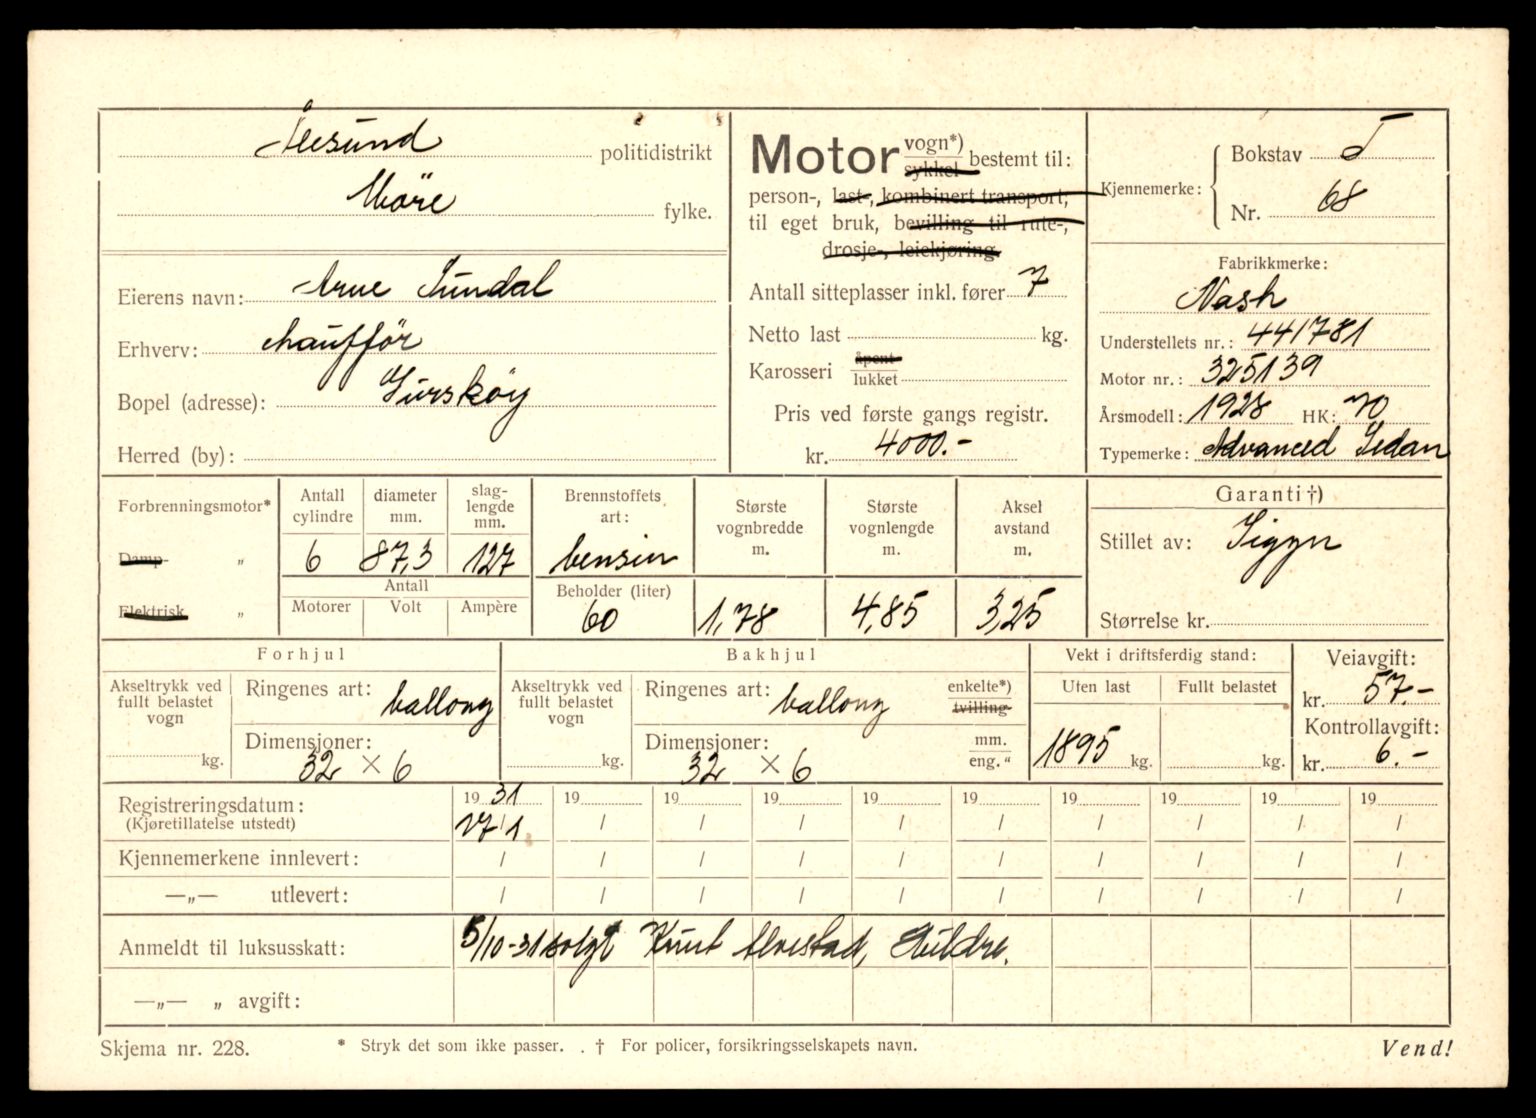 Ålesund politidistrikt
Möre fylke.
Eierens navn: Arne Sundal
Erhverv: chaufför
Bopel (adresse): Gursköy
Herred (by):
Motor vogn*) sykkel bestemt til:
person-, last-, kombinert transport,
til eget bruk, bevilling til rute-,
drosje-, leiekjøring.
Antall sitteplasser inkl. fører 7
Netto last kg.
Karosseri åpent lukket
Pris ved første gangs registr.
kr. 4000.-
Kjennemerke: Bokstav T
Nr. 68
Fabrikkmerke:
Nash
Understellets nr.: 441781
Motor nr.: 325139
Årsmodell: 1928 HK: 70
Typemerke: Advanced Sedan
Forbrenningsmotor*
Damp „
Elektrisk „
Antall cylindre diameter mm. slag-lengde mm.
6 87,3 127
Antall
Motorer Volt Ampère
Brennstoffets art:
bensin
Beholder (liter)
60
Største vognbredde m.
1,78
Største vognlengde m.
4,85
Aksel avstand m.
3,25
Garanti †)
Stillet av: Sigyn
Størrelse kr.
Forhjul
Akseltrykk ved fullt belastet vogn
kg.
Ringenes art: ballong
Dimensjoner:
32 × 6
Bakhjul
Akseltrykk ved fullt belastet vogn
kg.
Ringenes art: ballong enkelte*) tvilling
Dimensjoner: mm. eng."
32 × 6
Vekt i driftsferdig stand:
Uten last Fullt belastet
1895 kg. kg.
Veiavgift:
kr. 57.-
Kontrollavgift:
kr. 6.-
Registreringsdatum: 19 31 19 19 19 19 19 19 19 19 19
(Kjøretillatelse utstedt) 17/1 / / / / / / / / /
Kjennemerkene innlevert: / / / / / / / / / /
—„— utlevert: / / / / / / / / / /
Anmeldt til luksusskatt: 5/10-31 solgt Knut Alvestad, Hildre.
—„— „ avgift:
Skjema nr. 228. * Stryk det som ikke passer. . † For policer, forsikringsselskapets navn. Vend!